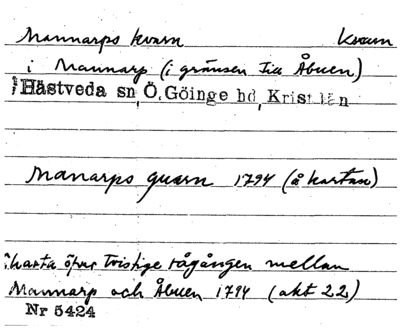 Mannarps kvarn Kvarn
i Mannarp (i gränsen till Åbuen)
Hästveda sn, Ö. Göinge hd, Krist län
Manarps quarn 1794 (å kartan)
Charta öfver Tvistige rågången mellan
Mannarp och Åbuen 1794 (akt 22)
Nr 5424